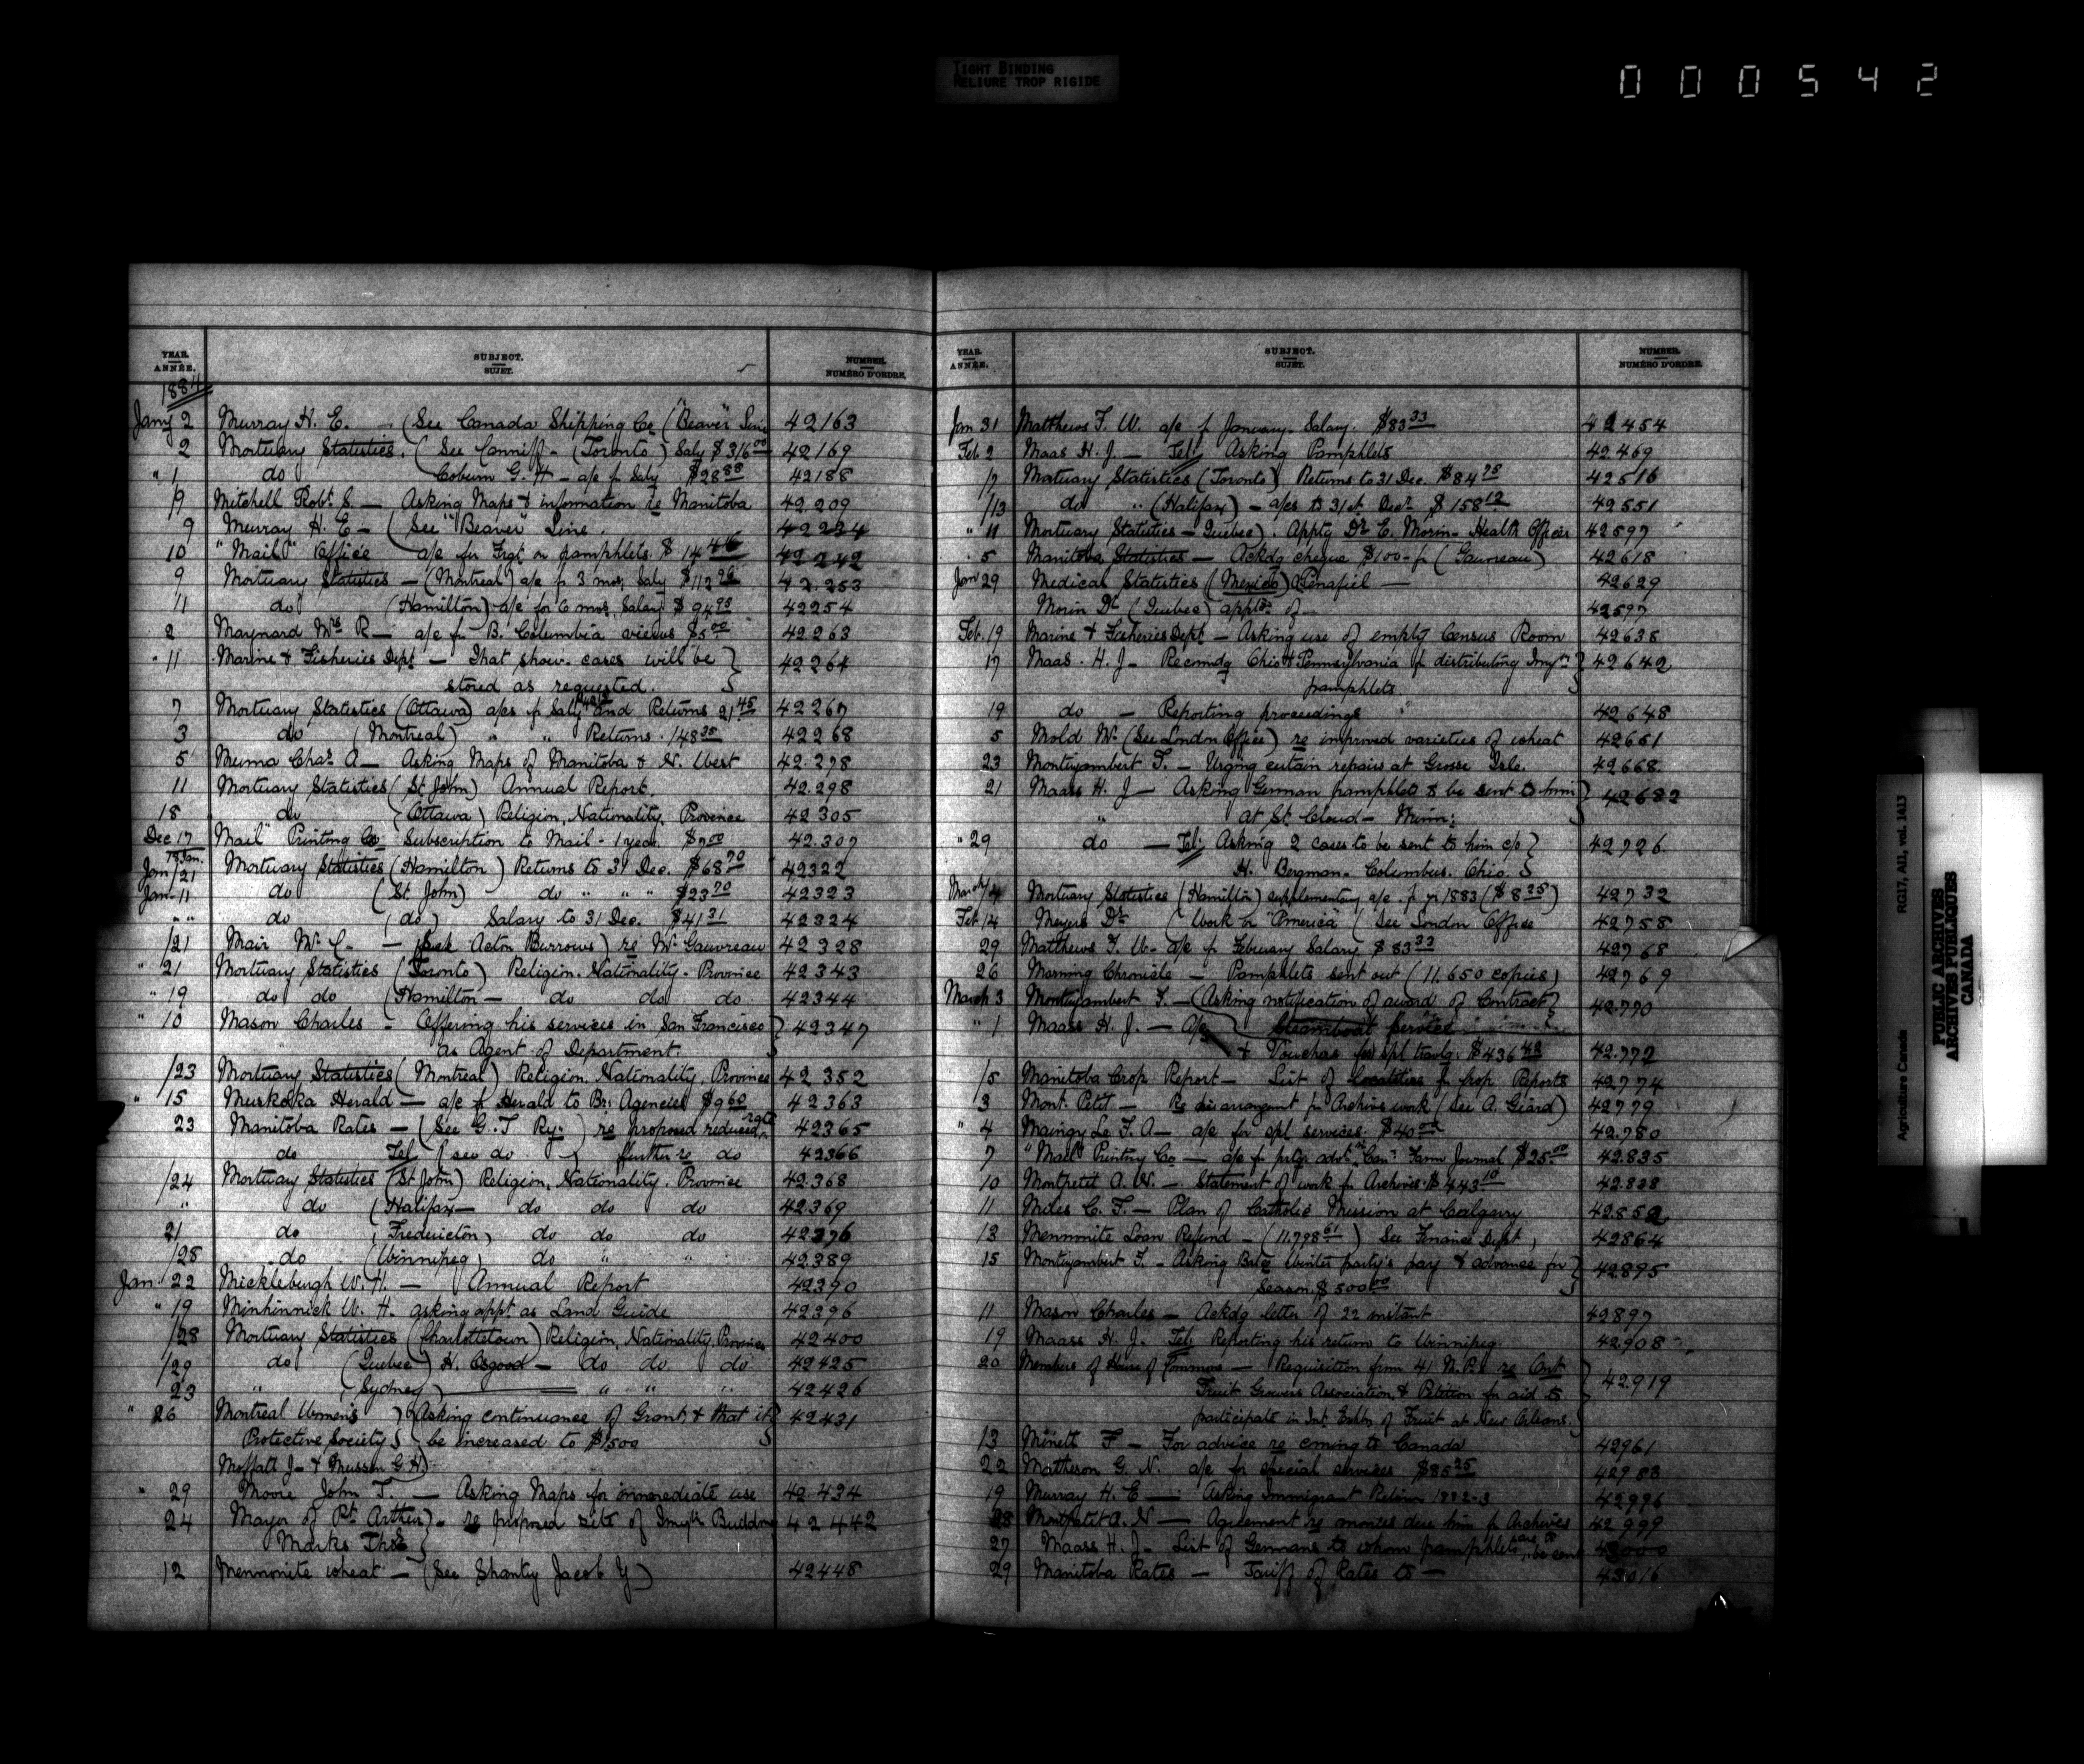 TIGHT BINDING
RELIURE TROP RIGIDE
000542
YEAR. ANNÉE. SUBJECT. SUJET. NUMBER. NUMÉRO D'ORDRE.
1884
Jany 2 Murray H. E. (See Canada Shipping Co ("Beaver" Line 42163
2 Mortuary Statistics. (See Canniff - (Toronto) Saly $316 00 42169
" 1 do Coburn G. H - a/c f Saly $28 88 42188
/9 Mitchell Robt. S. — Asking Maps & information re Manitoba 42.209
9 Murray H. E - (See "Beaver" Line 42234
10 "Mail" Office a/c for Frgt on pamphlets. $14 46 42242
9 Mortuary Statistics - (Montreal) a/c f 3 mos Saly $112 42.253
11 do (Hamilton) a/c for 6 mos. Salary $94 42254
2 Maynard Mrs R - a/c for B. Columbia views $5 00 42263
" 11 Marine & Fisheries Dept - That show-cases will be 42264
stored as requested.
7 Mortuary Statistics (Ottawa) a/cs f Saly and Returns 21.45 42267
3 do (Montreal) " " Returns. 148 35 42268
5 Muma Chas A - Asking Maps of Manitoba & N. West 42.278
11 Mortuary Statistics (St John) Annual Report. 42.298
18 do (Ottawa) Religion, Nationality, Province 42305
Dec 17 "Mail" Printing Co Subscription to Mail - 1 year. $7 00 42.307
Jan/21 Mortuary Statistics (Hamilton) Returns to 31 Dec. $68 70 42322
Jan-11 do (St. John) do " " " $23 70 42323
" " do (do) Salary to 31 Dec. $41 31 42324
/21 Mair Mr C. — Acton Burrows) re Mr Gauvreau 42328
" 21 Mortuary Statistics (Toronto) Religion. Nationality. Province 42343
" 19 do do (Hamilton - do do do 42344
" 10 Mason Charles - Offering his services in San Francisco 42347
as Agent of Department.
/23 Mortuary Statistics (Montreal) Religion, Nationality, Province 42352
" 15 Muskoka Herald - a/c f Herald to Br. Agencies $9 60 42363
23 Manitoba Rates - (See G. T Ry.) re proposed reduced rate 42365
do Tel (see do) further re do 42366
/24 Mortuary Statistics (St John) Religion, Nationality. Province 42.368
" do (Halifax - do do do 42369
21 do (Fredericton) do do do 42376
/28 do (Winnipeg) do " " 42389
Jan 22 Mickleburgh W. H. — Annual Report 42390
" 19 Minhinnick W. H. asking appt. as Land Guide 42396
/28 Mortuary Statistics (Charlottetown) Religion, Nationality, Province 42400
/29 do (Quebec) H. Osgood - do do do 42425
23 " (Sydney) " " " 42426
" 26 Montreal Women's } Asking continuance of Grant, & that it 42431
Protective Society } be increased to $1500
Moffatt J- & Musson G. H.
" 29 Moore John T. — Asking Maps for immediate use 42.434
24 Mayor of Pt. Arthur) - re proposed site of Imyn Building 42442
Marks Thos
12 Mennonite wheat - (See Shantz Jacob Y) 42448
YEAR. ANNÉE. SUBJECT. SUJET. NUMBER. NUMÉRO D'ORDRE.
Jan 31 Matthews F. W. a/c f January Salary. $83 33 42454
Feb. 2 Maas H. J. — Tel. Asking Pamphlets 42469
12 Mortuary Statistics (Toronto) Returns to 31 Dec. $84 42516
/13 do " (Halifax) - a/cs to 31st. Decr. $158 12 42551
" 11 Mortuary Statistics - Quebec). Apptg Dr E. Morin - Health Officer 42597
5 Manitoba Statistics - Ackdg cheque $100- f (Gauvreau) 42618
Jan 29 Medical Statistics (Mexico) (Penafiel — 42629
Morin Dr (Quebec) apptt of 42597
Feb. 19 Marine & Fisheries Dept - Asking use of empty Census Room 42638
17 Maas. H. J - Recomdg Ohio & Pennsylvania f distributing Imyn 42642
pamphlets
19 do - Reporting proceedings 42648
5 Mold W. (See London Office) re improved varieties of wheat 42651
23 Montizambert F. - Urging certain repairs at Grosse Isle. 42668.
21 Maass H. J - Asking German pamphlets to be sent to him 42682
at St. Cloud - Minn:
" 29 do — Tel: Asking 2 cases to be sent to him c/o 42726.
H. Bergman. Columbus. Ohio.
March 4 Mortuary Statistics (Hamilton) supplementary a/c f yr 1883 ($8 25) 42732
Feb 14 Meyers Dr (Work on "America" (See London Office 42758
29 Matthews F. W - a/c f February Salary $83 33 42768
26 Morning Chronicle - Pamphlets sent out (11.650 copies) 42769
March 3 Montizambert F. - (Asking notification of award of Contract 42.770
Steamboat Service
" 1 Maass H. J. - a/c & Vouchers for spl travlg: $436 42.772
/5 Manitoba Crop Report - List of localities f Crop Reports 42774
3 Mont. Petit — Re disarrangemt f Archive work (See A. Gérard) 42779
" 4 Maingy Le F. A - a/c for spl services. $40 00 42.780
7 "Mail" Printing Co - a/c f prtg advt. Can. Farm Journal $25.00 42.835
10 Montpetit A. N. — Statement of work f Archives. $443 10 42.838
11 Miles C. F. - Plan of Catholic Mission at Calgary 42.852
13 Mennonite Loan Refund - (11.798 61) See Finance Dept, 42864
15 Montizambert F. - Asking Balce Winter party's pay & advance for 42895
Season. $500 00
11 Mason Charles - Ackdg letter of 22 instant 42897
19 Maass H. J. Tel: Reporting his return to Winnipeg. 42.908
20 Members of House of Commons - Requisition from 41 M.P.s re Ont. 42.919
Fruit Growers Association & Petition for aid to
participate in Int. Exhbn of Fruit at New Orleans.
13 Minett F - For advice re coming to Canada 42961
22 Matheson G. N. a/c for special services $85 25 42983
19 Murray H. E — Asking Immigrant 1882-3 42996
28 Montpetit A. N — Agreement re monies due him f Archives 42.999
27 Maass H. J - List of Germans to whom pamphlets are to be sent 43000
29 Manitoba Rates - Tariff of Rates to - 43016
Agriculture Canada RG17, AII, vol. 1413
PUBLIC ARCHIVES
ARCHIVES PUBLIQUES
CANADA